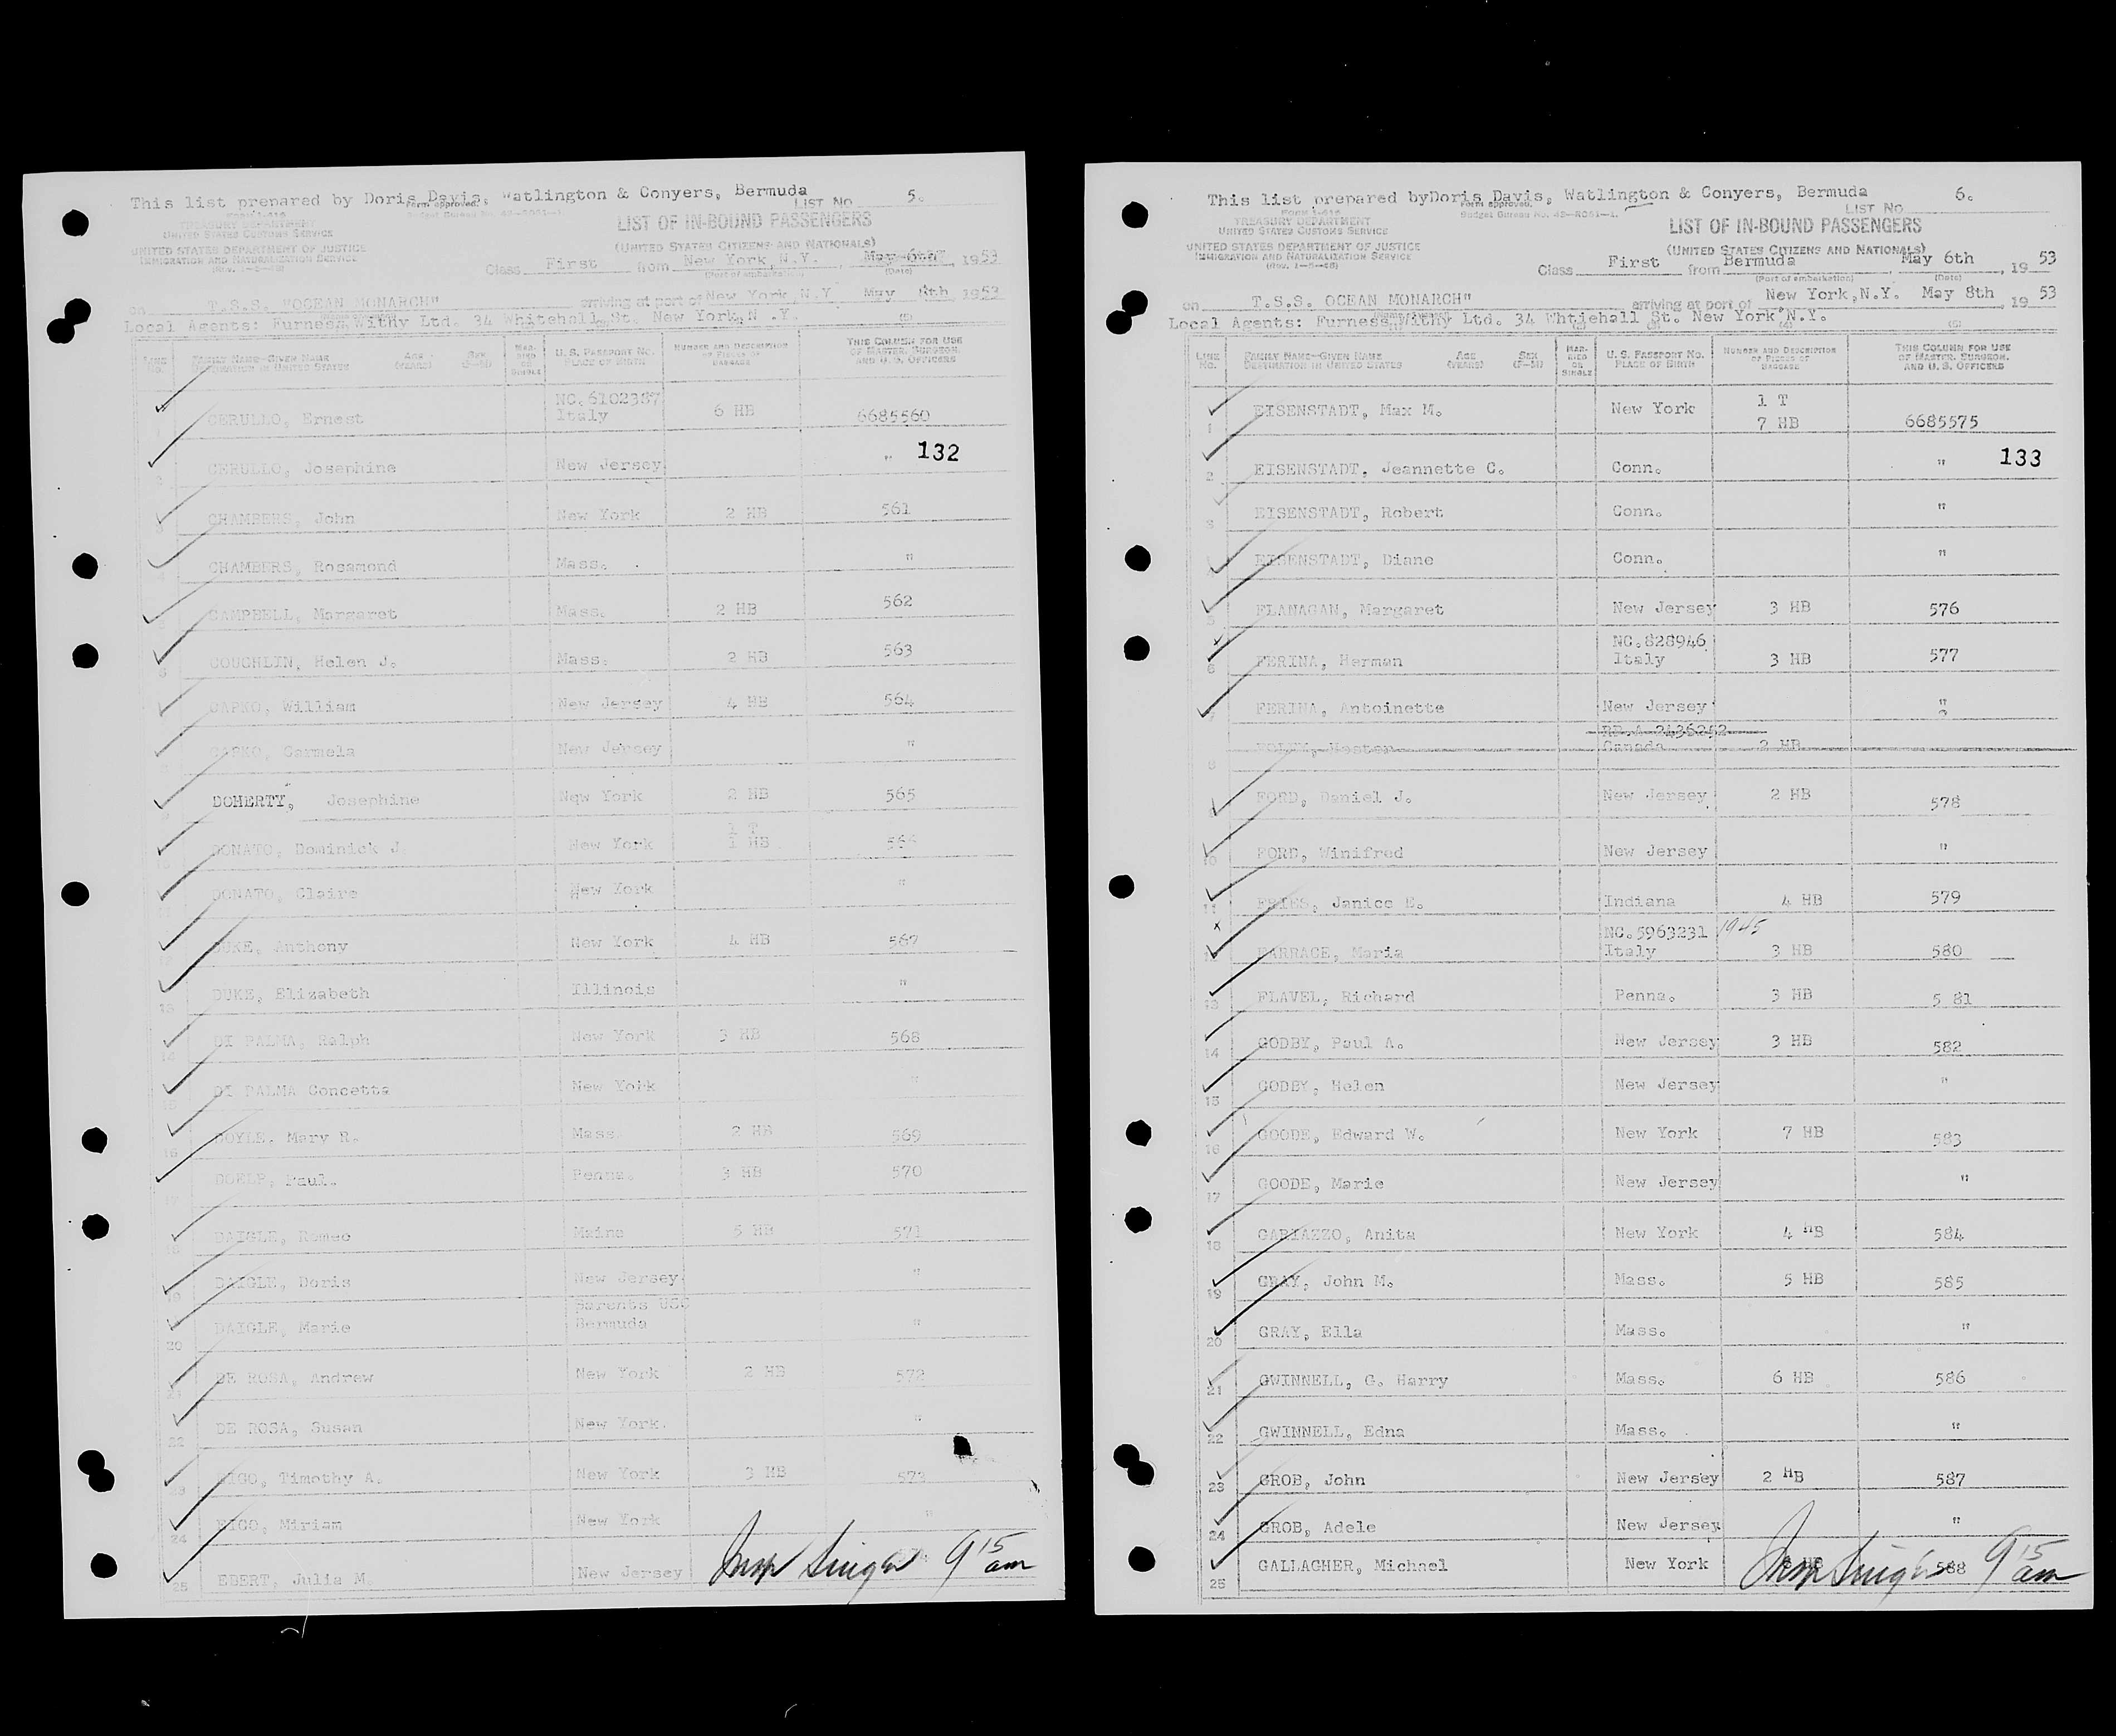 This list prepared by Doris Davis, Watlington & Conyers, Bermuda
LIST No. 5.
Form approved.
TREASURY DEPARTMENT
UNITED STATES CUSTOMS SERVICE
UNITED STATES DEPARTMENT OF JUSTICE
IMMIGRATION AND NATURALIZATION SERVICE
LIST OF IN-BOUND PASSENGERS
(UNITED STATES CITIZENS AND NATIONALS)
Class First from New York, N.Y. , May 6th , 1953
(Port of embarkation) (Date)
on T.S.S. "OCEAN MONARCH" arriving at port of New York, N.Y. May 8th, 1953
Local Agents: Furness Withy Ltd. 34 Whitehall St. New York, N .Y.
LINE No. FAMILY NAME—GIVEN NAME DESTINATION IN UNITED STATES AGE (YEARS) SEX (F—M) MARRIED OR SINGLE U. S. PASSPORT NO. PLACE OF BIRTH NUMBER AND DESCRIPTION OF PIECES OF BAGGAGE THIS COLUMN FOR USE OF MASTER, SURGEON, AND U. S. OFFICERS
CERULLO, Ernest NC.6102387 Italy 6 HB 6685560
CERULLO, Josephine New Jersey " 132
CHAMBERS, John New York 2 HB 561
CHAMBERS, Rosamond Mass. "
CAMPBELL, Margaret Mass. 2 HB 562
COUGHLIN, Helen J. Mass. 2 HB 563
CAPKO, William New Jersey 4 HB 564
CAPKO, Carmela New Jersey "
DOHERTY, Josephine New York 2 HB 565
DONATO, Dominick J. New York 1 T 1 HB 566
DONATO, Claire New York "
DUKE, Anthony New York 4 HB 567
13 DUKE, Elizabeth Illinois "
14 DI PALMA, Ralph New York 3 HB 568
15 DI PALMA Concetta New York "
16 DOYLE, Mary R. Mass. 2 HB 569
17 Paul. Penna. 3 HB 570
18 DAIGLE, Romeo Maine 5 HB 571
19 DAIGLE, Doris New Jersey "
20 DAIGLE, Marie parents USC Bermuda "
21 DE ROSA, Andrew New York 2 HB 572
22 DE ROSA, Susan New York. "
23 Timothy A. New York 3 HB 573
24 Miriam New York "
25 EBERT, Julia M. New Jersey
Insp Singer 9 15 am
This list prepared byDoris Davis, Watlington & Conyers, Bermuda
LIST No. 6.
Form approved.
Budget Bureau No. 43-R061-1.
TREASURY DEPARTMENT
UNITED STATES CUSTOMS SERVICE
UNITED STATES DEPARTMENT OF JUSTICE
IMMIGRATION AND NATURALIZATION SERVICE
LIST OF IN-BOUND PASSENGERS
(UNITED STATES CITIZENS AND NATIONALS)
Class First from Bermuda , May 6th , 19 53
(Port of embarkation) (Date)
on T.S.S. OCEAN MONARCH" arriving at port of New York,N.Y. May 8th , 19 53
Local Agents: Furness Withy Ltd. 34 Whtiehall St. New York N.Y.
LINE No. FAMILY NAME—GIVEN NAME DESTINATION IN UNITED STATES AGE (YEARS) SEX (F—M) MARRIED OR SINGLE U. S. PASSPORT NO. PLACE OF BIRTH NUMBER AND DESCRIPTION OF PIECES OF BAGGAGE THIS COLUMN FOR USE OF MASTER, SURGEON, AND U. S. OFFICERS
1 EISENSTADT, Max M. New York 1 T 7 HB 6685575
2 EISENSTADT, Jeannette C. Conn. " 133
3 EISENSTADT, Robert Conn. "
4 EISENSTADT, Diane Conn. "
5 FLANAGAN, Margaret New Jersey 3 HB 576
6 FERINA, Herman NC.828946 Italy 3 HB 577
7 FERINA, Antoinette New Jersey "
8 FOLEY, Hester RP.A 2436252 Canada 2 HB
9 FORD, Daniel J. New Jersey 2 HB 578
10 FORD, Winifred New Jersey "
11 FRIES, Janice E. Indiana 4 HB 579
x FARRACE, Maria NC.5963231 1945 Italy 3 HB 580
13 FLAVEL, Richard Penna. 3 HB 5 81
14 GODBY, Paul A. New Jersey 3 HB 582
15 GODBY, Helen New Jersey "
16 GOODE, Edward W. New York 7 HB 583
17 GOODE, Marie New Jersey "
18 GARIAZZO, Anita New York 4 HB 584
19 GRAY, John M. Mass. 5 HB 585
20 GRAY, Ella Mass. "
21 GWINNELL, G. Harry Mass. 6 HB 586
22 GWINNELL, Edna Mass. "
23 GROB, John New Jersey 2 HB 587
24 GROB, Adele New Jersey "
25 GALLAGHER, Michael New York HB 588
Insp Singer 9 15 am